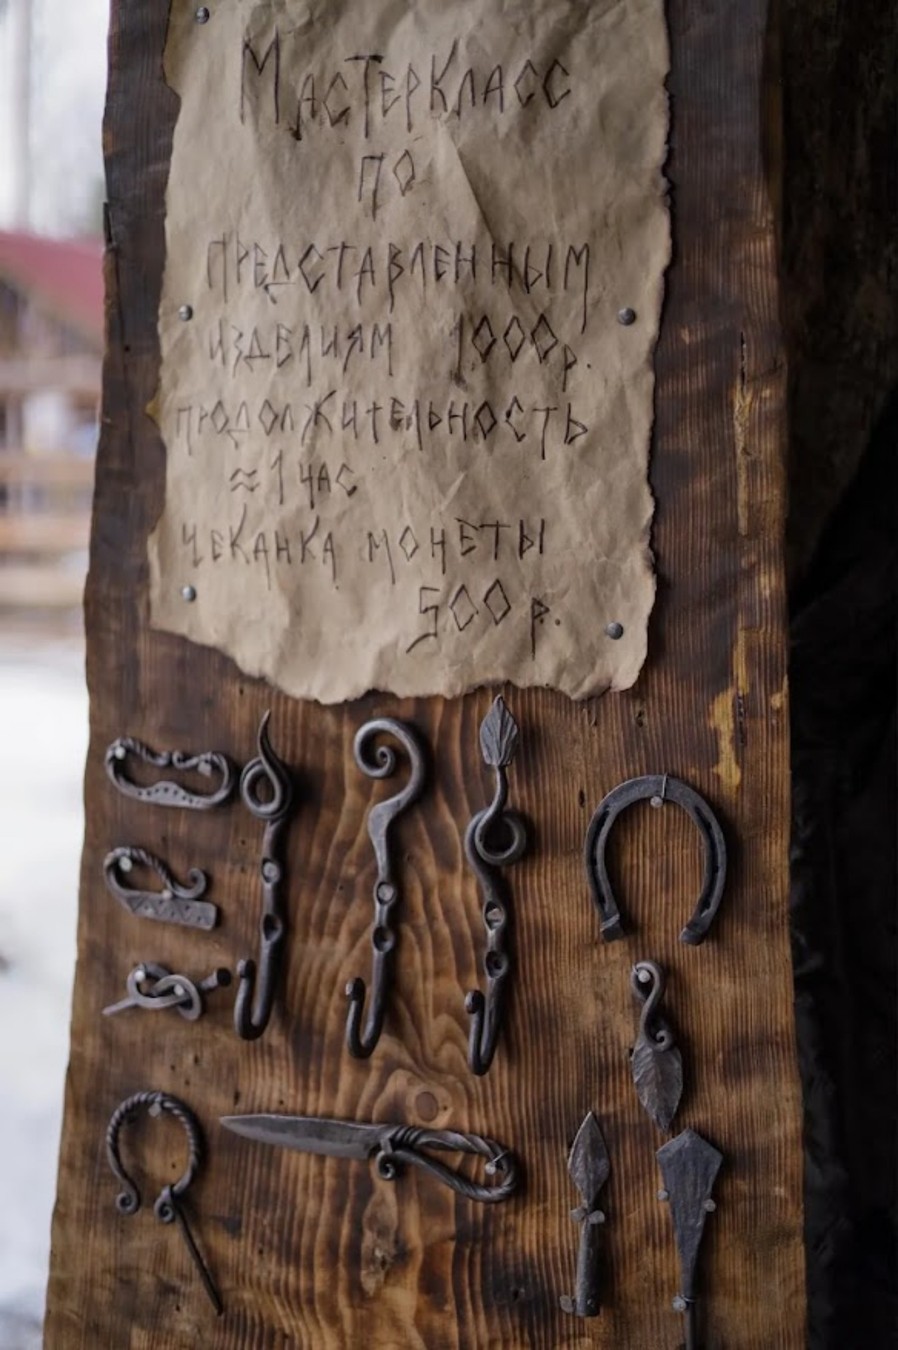 МастерКласс
по
представленным
изделиям 1000р.
продолжительность
≈1 час
чеканка монеты
500 р.